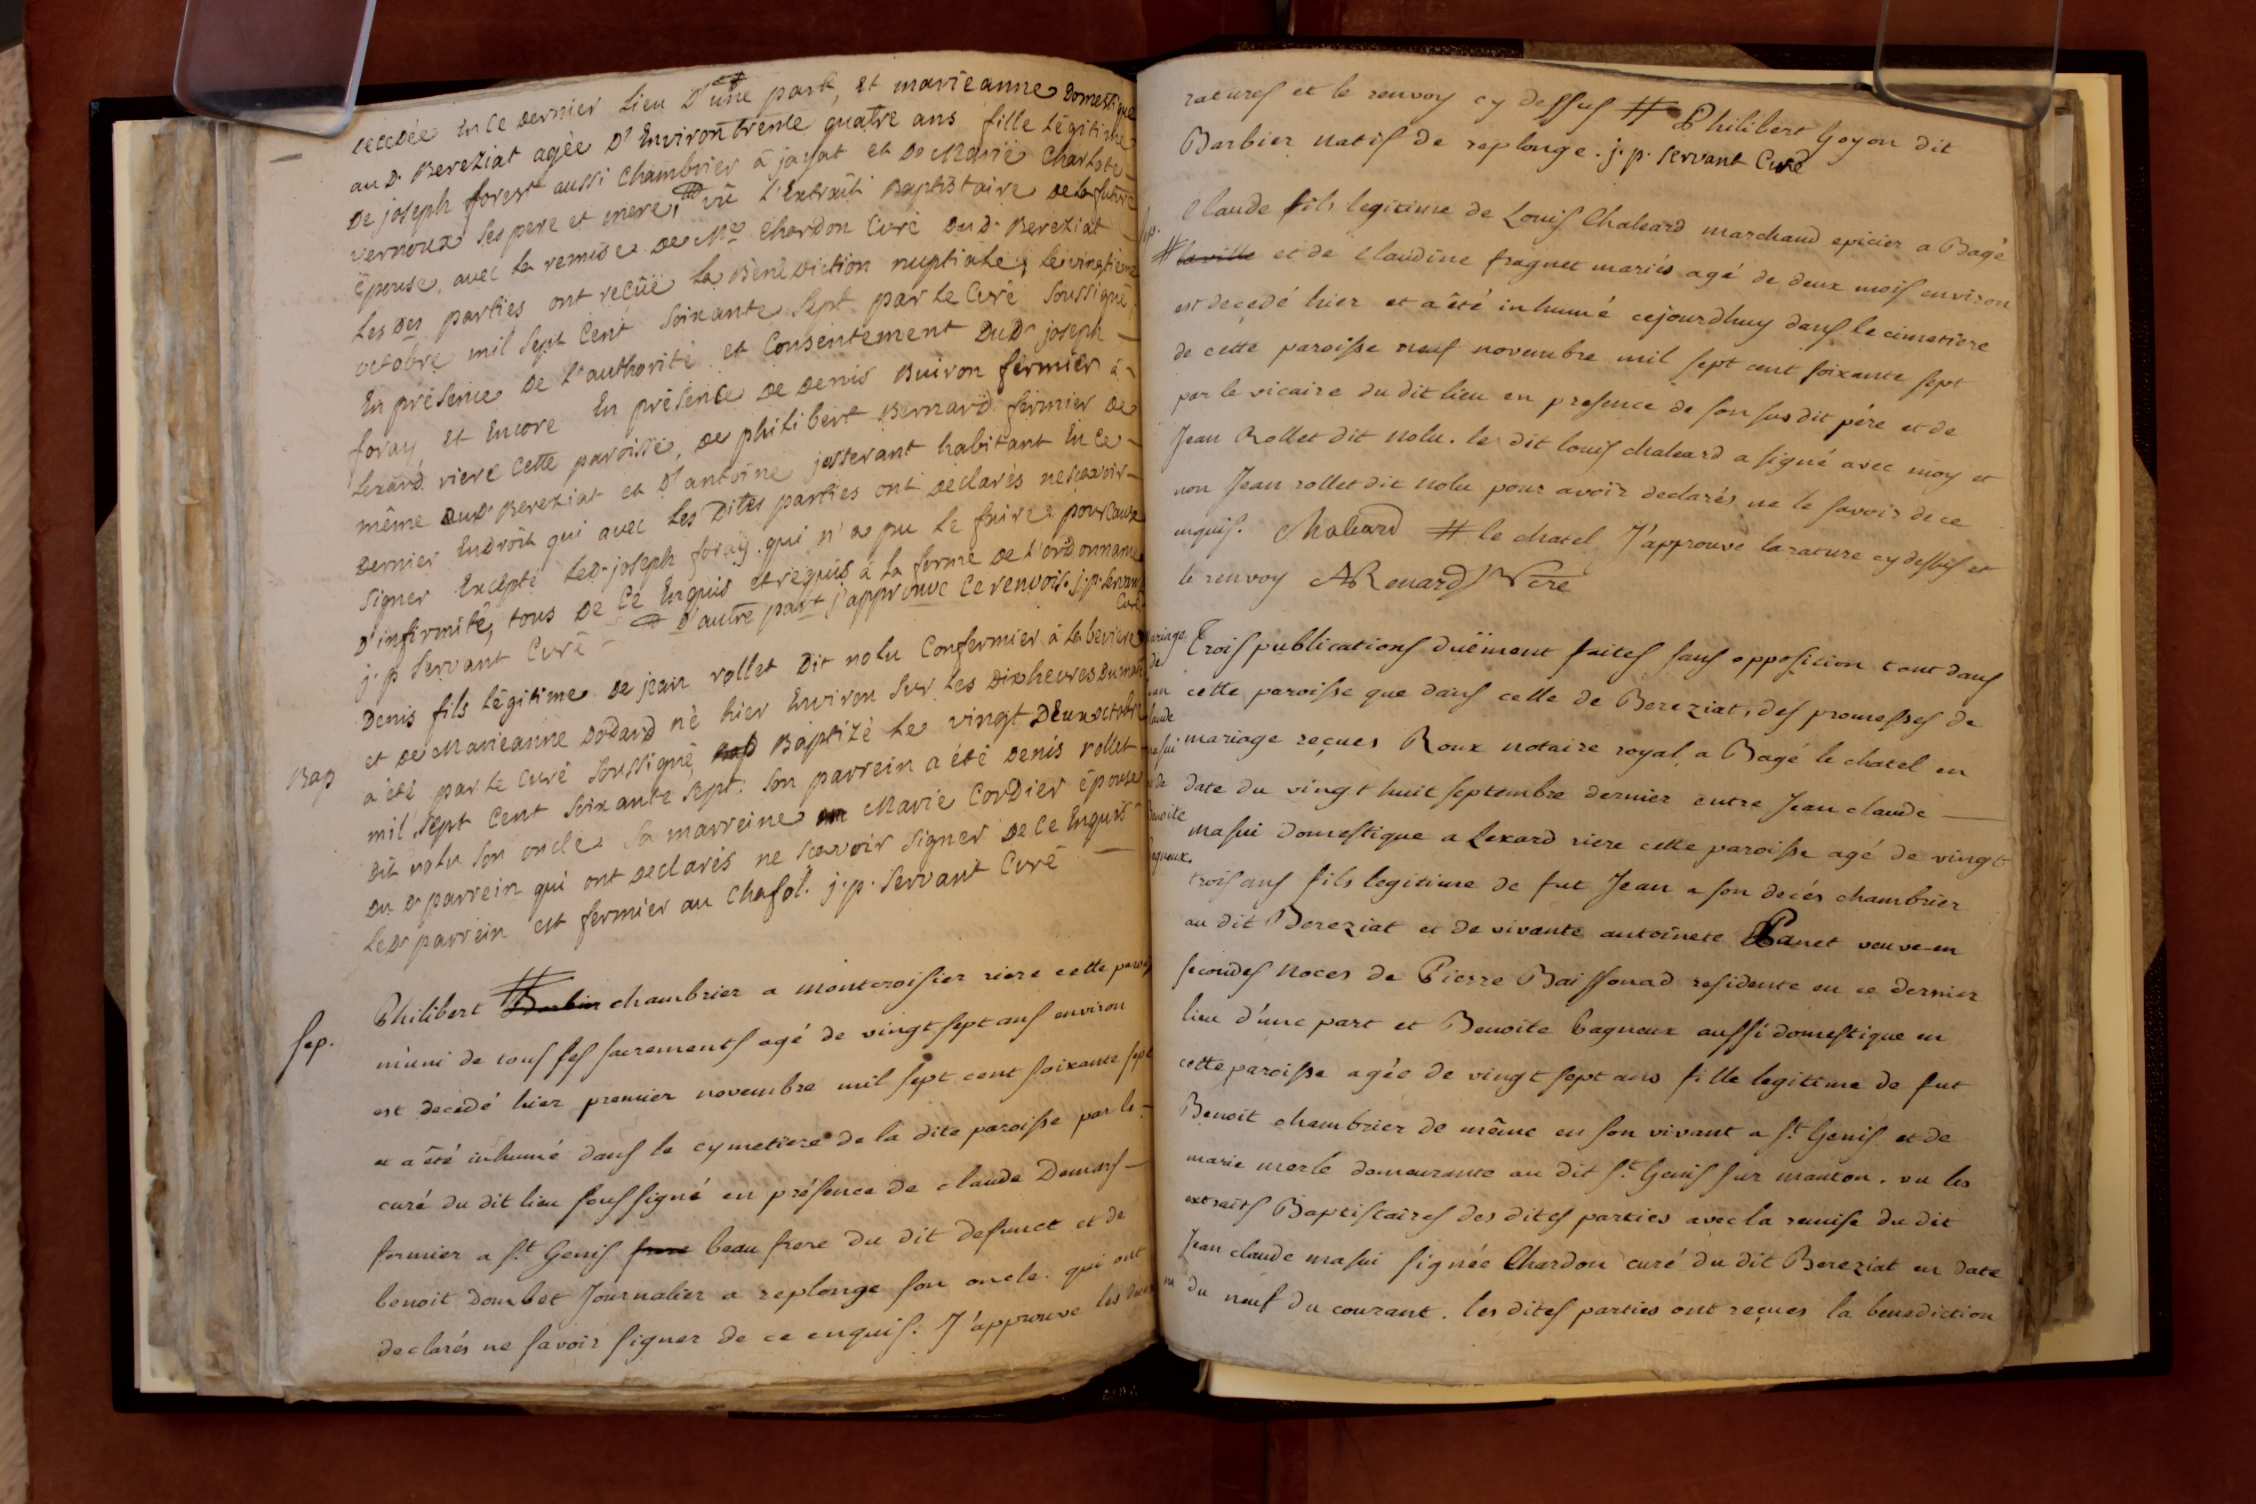 decedée en ce dernier Lieu D'une part, et marieanne Domestique
au D. Bereziat agée D'Environ trente quatre ans fille Légitime
De joseph forest aussi Chambrier à jayat et De Marie Charlote
vernoux ses pere et mere, vû l'Extrait Baptistaire De la future
Epouse, avec la remise De Mre Chardon Curé Dud. Bereziat
Les Des parties ont reçüe La Bénédiction nuptiale, le vingtieme
octobre mil sept Cent soixante sept par le Curé soussigné
En présence De l'authorité et Consentement DuDt joseph
foray, Et Encore En présence De Denis Buiron fermier à
Lexard riere Cette paroisse, De philibert Bernard fermier De
même Dudt Bereziat et D'antoine josserant habitant En Ce
Dernier Endroit qui avec Les Dites parties ont déclarés ne scavoir
signer Excepté LeDt joseph foray qui n'a pu le faire pour Cause
D'infirmité, tous De Ce Enquis et requis à la forme De L'ordonnance
j. p. Servant Curé # D'autre part j'approuve Ce renvois. j. p. Servant
Curé
Denis fils Légitime De jean rollet Dit nolu Confermier à la beviere
et De Marieanne Dodard né hier Environ sur Les Dix heures Du matin
Bap
a été par Le Curé soussigné Baptizé Le vingt Deux octobre
mil sept Cent soixante sept: son parrein a été Denis rollet
Dit nolu son oncle sa marreine Marie Cordier épouse
Du Dt parrein qui ont Declarés ne scavoir signer De Ce Enquis
LeDt parrein est fermier au Chafol. j. p. Servant Curé
Philibert # Barbier chambrier a montcroisier riere cette paroisse
Sep.
muni de tous ses sacrements agé de vingt sept ans environ
est decedé hier premier novembre mil sept cent soixante sept
et a été inhumé dans le cymetiere de la dite paroisse par le
curé du dit lieu soussigné en présence de claude Demars
fermier a St. Genis frere beau frere du dit defunct et de
benoit dombet Journalier a replonge son oncle qui ont
declarés ne savoir signer de ce enquis. J'approuve les deux
ratures et le renvoy cy dessus # Philibert Goyon dit
Barbier natif de replonge. j. p. Servant Curé
Claude fils legitime de Louis Chaleard marchand epicier a Bagé
sep.
# la ville et de Claudine fragnet mariés agé de deux mois environ
est decedé hier et a été inhumé cejourdhuy dans le cimetiere
de cette paroisse neuf novembre mil sept cent soixante sept
par le vicaire du dit lieu en presence de son sus dit père et de
Jean Rollet dit nolu. le dit louis chaleard a signé avec moy et
non Jean rollet dit nolu pour avoir declarés ne le savoir de ce
enquis. Chaleard # le chatel J'approuve la rature cy dessus et
le renvoy ARenard Vcre
mariage
de
jean
claude
masui
et de
Benoite
Cagneux
Trois publications duëment faites sans opposition tant dans
cette paroisse que dans celle de Bereziat, des promesses de
mariage reçues Roux notaire royal a Bagé le chatel en
date du vingt huit septembre dernier entre Jean claude
masui domestique a Lexard riere cette paroisse agé de vingt
trois ans fils legitime de fut Jean a son decés chambrier
au dit Bereziat et de vivante antoinete Panet veuve en
secondes noces de Pierre Baissonad residente en ce dernier
lieu d'une part et Benoite Cagneux aussi domestique en
cette paroisse agée de vingt sept ans fille legitime de fut
Benoit chambrier de même en son vivant a St. Genis et de
marie merle demeurante au dit St. Genis sur manton. vu les
extraits Baptistaires des dites parties avec la remise du dit
Jean claude masui signée Chardon curé du dit Bereziat en date
du neuf du courant. les dites parties ont reçues la benediction